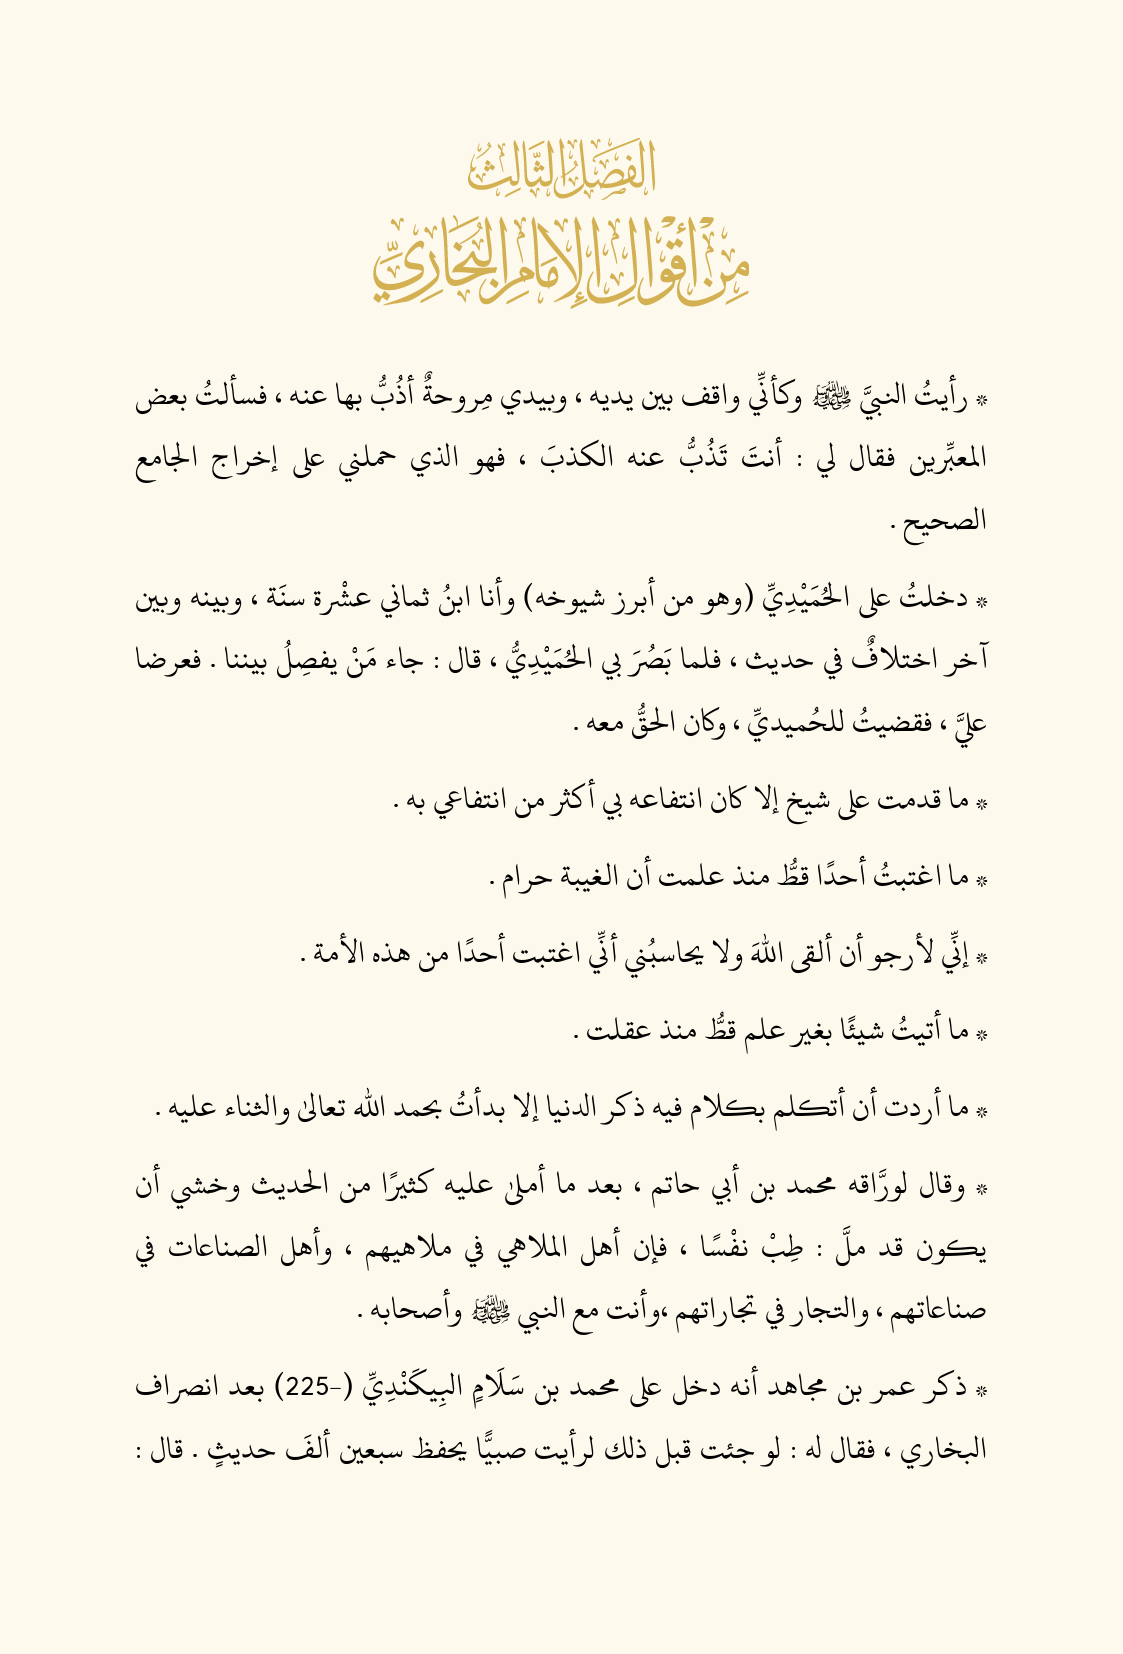 الفَصْلُ الثَّالِثُ
مِنْ أَقْوَالِ الإِمَامِ البُخَارِيِّ
* رأيتُ النبيَّ ﷺ وكأنِّي واقف بين يديه ، وبيدي مِروحةٌ أذُبُّ بها عنه ، فسألتُ بعض
المعبِّرين فقال لي : أنتَ تَذُبُّ عنه الكذبَ ، فهو الذي حملني على إخراج الجامع
الصحيح .
* دخلتُ على الحُمَيْدِيِّ (وهو من أبرز شيوخه) وأنا ابنُ ثماني عشْرة سنَة ، وبينه وبين
آخر اختلافٌ في حديث ، فلما بَصُرَ بي الحُمَيْدِيُّ ، قال : جاء مَنْ يفصِلُ بيننا . فعرضا
عليَّ ، فقضيتُ للحُميديِّ ، وكان الحقُّ معه .
* ما قدمت على شيخ إلا كان انتفاعه بي أكثر من انتفاعي به .
* ما اغتبتُ أحدًا قطُّ منذ علمت أن الغيبة حرام .
* إنِّي لأرجو أن ألقى اللهَ ولا يحاسبُني أنِّي اغتبت أحدًا من هذه الأمة .
* ما أتيتُ شيئًا بغير علم قطُّ منذ عقلت .
* ما أردت أن أتكلم بكلام فيه ذكر الدنيا إلا بدأتُ بحمد الله تعالىٰ والثناء عليه .
* وقال لورَّاقه محمد بن أبي حاتم ، بعد ما أملىٰ عليه كثيرًا من الحديث وخشي أن
يكون قد ملَّ : طِبْ نفْسًا ، فإن أهل الملاهي في ملاهيهم ، وأهل الصناعات في
صناعاتهم ، والتجار في تجاراتهم ،وأنت مع النبي ﷺ وأصحابه .
* ذكر عمر بن مجاهد أنه دخل على محمد بن سَلَامٍ البِيكَنْدِيِّ (-225) بعد انصراف
البخاري ، فقال له : لو جئت قبل ذلك لرأيت صبيًّا يحفظ سبعين ألفَ حديثٍ . قال :